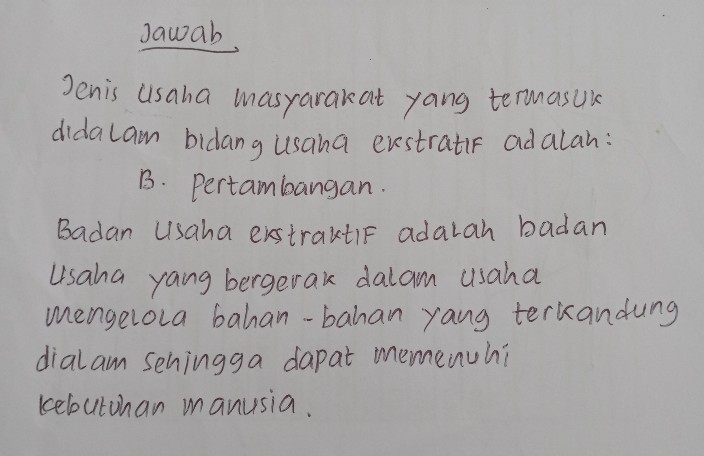 Jawab
Jenis usaha masyarakat yang termasuk
didalam bidang usaha ekstratif adalah:
B. Pertambangan.
Badan usaha ekstraktif adalah badan
usaha yang bergerak dalam usaha
mengelola bahan-bahan yang terkandung
dialam sehingga dapat memenuhi
kebutuhan manusia.